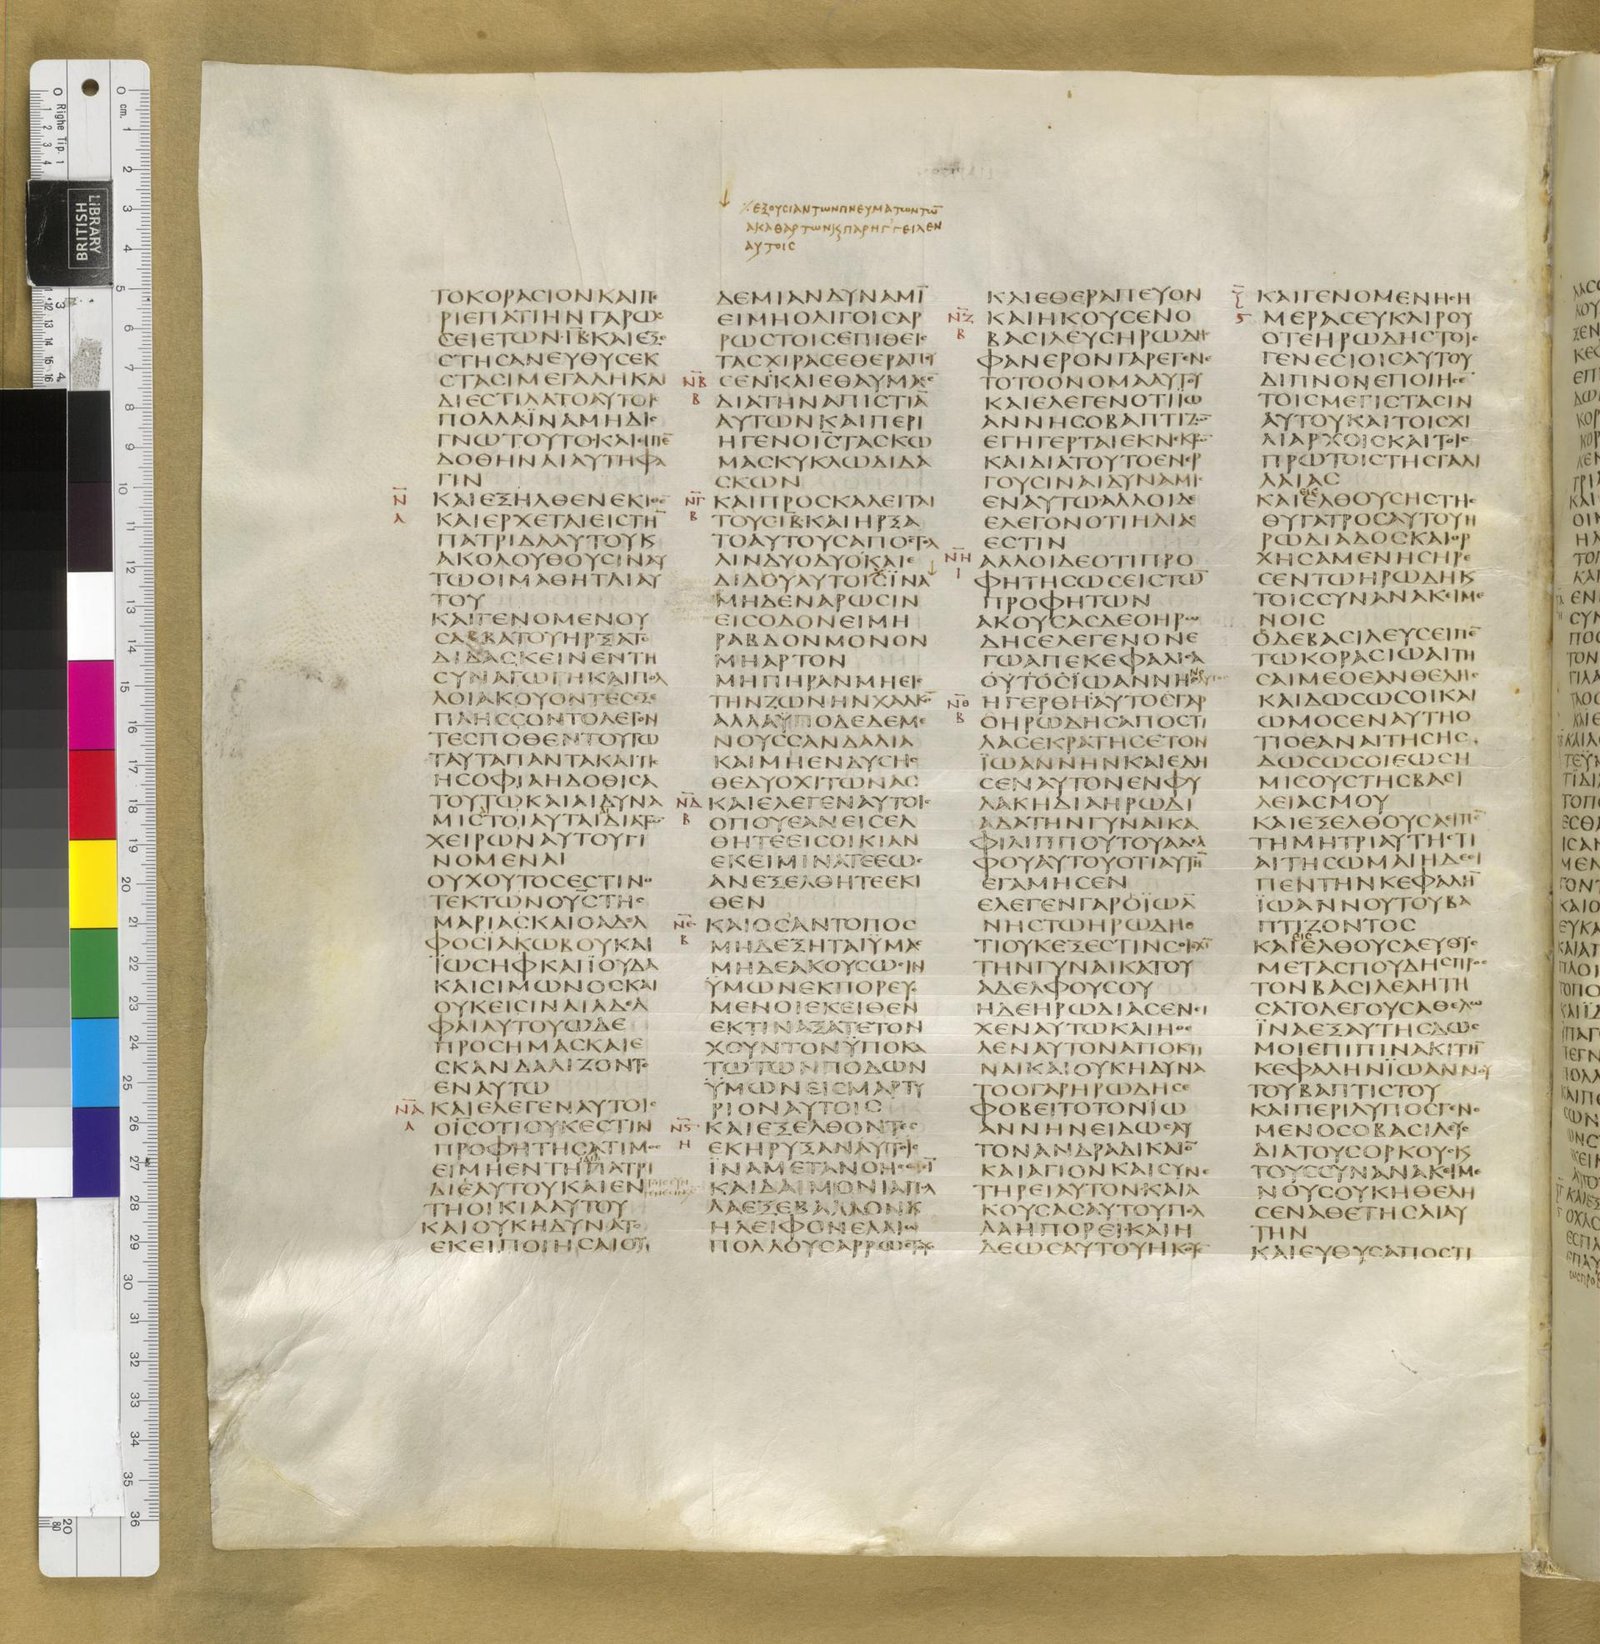 ⁒ ΕΞΟΥϹΙΑΝΤΩΝΠΝΕΥΜΑΤΩΝΤΩ̅
ΑΚΑΘΑΡΤΩΝϏΠΑΡΗΓΓΕΙΛΕΝ
ΑΥΤΟΙϹ
ΤΟΚΟΡΑϹΙΟΝΚΑΙΠΕ
ΡΙΕΠΑΤΙΗΝΓΑΡΩ
ϹΕΙΕΤΩΝ·ΙΒ̅ΚΑΙΕΞΕ
ϹΤΗϹΑΝΕΥΘΥϹΕΚ
ϹΤΑϹΙΜΕΓΑΛΗΚΑΙ
ΔΙΕϹΤΙΛΑΤΟΑΥΤΟΙϹ
ΠΟΛΛΑΪΝΑΜΗΔΙϹ
ΓΝΩΤΟΥΤΟΚΑΙΕΙΠΕ̅
ΔΟΘΗΝΑΙΑΥΤΗΦΑ
ΓΙΝ
Ν̅
Α
ΚΑΙΕΞΗΛΘΕΝΕΚΙΘΕ
ΚΑΙΕΡΧΕΤΑΙΕΙϹΤΗ̅
ΠΑΤΡΙΔΑΑΥΤΟΥϏ
ΑΚΟΛΟΥΘΟΥϹΙΝΑΥ
ΤΩΟΙΜΑΘΗΤΑΙΑΥ
ΤΟΥ
ΚΑΙΓΕΝΟΜΕΝΟΥ
ϹΑΒΒΑΤΟΥΗΡΞΑΤΟ
ΔΙΔΑϹΚΕΙΝΕΝΤΗ
ϹΥΝΑΓΩΓΗΚΑΙΠΟΛ
ΛΟΙΑΚΟΥΟΝΤΕϹΕΞΕ
ΠΛΗϹϹΟΝΤΟΛΕΓΟΝ
ΤΕϹΠΟΘΕΝΤΟΥΤΩ
ΤΑΥΤΑΠΑΝΤΑΚΑΙΤΙϹ
ΗϹΟΦΙΑΗΔΟΘΙϹΑ
ΤΟΥΤΩΚΑΙΑΙΔΥΝΑ
ΜΙϹΤΟΙΑΥΤΑΙΔΙΑΤΩ̅
ΧΕΙΡΩΝΑΥΤΟΥΓΙ
ΝΟΜΕΝΑΙ
ΟΥΧΟΥΤΟϹΕϹΤΙΝΟ
ΤΕΚΤΩΝΟΥΣ̅ΤΗϹ
ΜΑΡΙΑϹΚΑΙΟΑΔΕΛ
ΦΟϹΪΑΚΩΒΟΥΚΑΙ
ΪΩϹΗΦΚΑΙΪΟΥΔΑ
ΚΑΙϹΙΜΩΝΟϹΚΑΙ
ΟΥΚΕΙϹΙΝΑΙΑΔΕΛ
ΦΑΙΑΥΤΟΥΩΔΕ
ΠΡΟϹΗΜΑϹΚΑΙΕ
ϹΚΑΝΔΑΛΙΖΟΝΤΟ
ΕΝΑΥΤΩ
ΝΑ̅
Α
ΚΑΙΕΛΕΓΕΝΑΥΤΟΙϹ
ΟΙϹΟΤΙΟΥΚΕϹΤΙΝ
ΠΡΟΦΗΤΗϹΑΤΙΜΟϹ
ΕΙΜΗΕΝΤΗΠΑΤΡΙ
ΔΙΕΑΥΤΟΥΚΑΙΕΝ
ΤΗΟΙΚΙΑΑΥΤΟΥ
ΚΑΙΟΥΚΗΔΥΝΑΤΟ
ΕΚΕΙΠΟΙΗϹΑΙΟΥ
ΔΕΜΙΑΝΔΥΝΑΜΙ̅
ΕΙΜΗΟΛΙΓΟΙϹΑΡ
ΡΩϹΤΟΙϹΕΠΙΘΕΙϹ
ΤΑϹΧΙΡΑϹΕΘΕΡΑΠΕΥ
ΝΒ̅
Β
ϹΕΝΚΑΙΕΘΑΥΜΑϹΕ̅
ΔΙΑΤΗΝΑΠΙϹΤΙΑ̅
ΑΥΤΩΝΚΑΙΠΕΡΙ
ΗΓΕΝΟΙϹΤΑϹΚΩ
ΜΑϹΚΥΚΛΩΔΙΔΑ
ϹΚΩΝ
ΝΓ̅
Β
ΚΑΙΠΡΟϹΚΑΛΕΙΤΑΙ
ΤΟΥϹΙΒ̅ΚΑΙΗΡΞΑ
ΤΟΑΥΤΟΥϹΑΠΟϹΤΕΛ
ΛΙΝΔΥΟΔΥΟΚΑΙΕ
ΔΙΔΟΥΑΥΤΟΙϹΪΝΑ
ΜΗΔΕΝΑΡΩϹΙΝ
ΕΙϹΟΔΟΝΕΙΜΗ
ΡΑΒΔΟΝΜΟΝΟΝ
ΜΗΑΡΤΟΝ
ΜΗΠΗΡΑΝΜΗΕΙϹ
ΤΗΝΖΩΝΗΝΧΑΛΚΟ̅
ΑΛΛΑΥΠΟΔΕΔΕΜΕ
ΝΟΥϹϹΑΝΔΑΛΙΑ
ΚΑΙΜΗΕΝΔΥϹΗϹ
ΘΕΔΥΟΧΙΤΩΝΑϹ
ΝΔ̅
Β
ΚΑΙΕΛΕΓΕΝΑΥΤΟΙϹ
ΟΠΟΥΕΑΝΕΙϹΕΛ
ΘΗΤΕΕΙϹΟΙΚΙΑΝ
ΕΚΕΙΜΙΝΑΤΕΕΩϹ
ΑΝΕΞΕΛΘΗΤΕΕΚΙ
ΘΕΝ
ΝΕ̅
Β
ΚΑΙΟϹΑΝΤΟΠΟϹ
ΜΗΔΕΞΗΤΑΙΫΜΑϹ
ΜΗΔΕΑΚΟΥϹΩϹΙΝ
ΫΜΩΝΕΚΠΟΡΕΥΟ
ΜΕΝΟΙΕΚΕΙΘΕΝ
ΕΚΤΙΝΑΞΑΤΕΤΟΝ
ΧΟΥΝΤΟΝΫΠΟΚΑ
ΤΩΤΩΝΠΟΔΩΝ
ΫΜΩΝΕΙϹΜΑΡΤΥ
ΡΙΟΝΑΥΤΟΙϹ
ΝϚ̅
Η
ΚΑΙΕΞΕΛΘΟΝΤΕϹ
ΕΚΗΡΥΞΑΝΑΥΤΟΙϹ
ΪΝΑΜΕΤΑΝΟΗϹΩϹΙ̅
ΚΑΙΔΑΙΜΟΝΙΑΠΟΛ
ΛΑΕΞΕΒΑΛΛΟΝϏ
ΗΛΕΙΦΟΝΕΛΑΙΩ
ΠΟΛΛΟΥϹΑΡΡΩϹΤΟΥϹ
ΚΑΙΕΘΕΡΑΠΕΥΟΝ
ΝΖ̅
Β
ΚΑΙΗΚΟΥϹΕΝΟ
ΒΑϹΙΛΕΥϹΗΡΩΔΗϹ
ΦΑΝΕΡΟΝΓΑΡΕΓΕΝΕ
ΤΟΤΟΟΝΟΜΑΑΥΤΟΥ
ΚΑΙΕΛΕΓΕΝΟΤΙΪΩ
ΑΝΝΗϹΟΒΑΠΤΙΖΩ̅
ΕΓΗΓΕΡΤΑΙΕΚΝΕΚΡΩ̅
ΚΑΙΔΙΑΤΟΥΤΟΕΝΕΡ
ΓΟΥϹΙΝΑΙΔΥΝΑΜΙϹ
ΕΝΑΥΤΩΑΛΛΟΙΔΕ
ΕΛΕΓΟΝΟΤΙΗΛΙΑϹ
ΕϹΤΙΝ
ΝΗ̅
Ι
ΑΛΛΟΙΔΕΟΤΙΠΡΟ
ΦΗΤΗϹΩϹΕΙϹΤΩ̅
ΠΡΟΦΗΤΩΝ
ΑΚΟΥϹΑϹΔΕΟΗΡΩ
ΔΗϹΕΛΕΓΕΝΟΝΕ
ΓΩΑΠΕΚΕΦΑΛΙϹΑ
ΟΥΤΟϹΪΩΑΝΝΗϹ
ΝΘ̅
Β
ΗΓΕΡΘΗΑΥΤΟϹΓΑΡ
ΟΗΡΩΔΗϹΑΠΟϹΤΙ
ΛΑϹΕΚΡΑΤΗϹΕΤΟΝ
ΪΩΑΝΝΗΝΚΑΙΕΔΗ
ϹΕΝΑΥΤΟΝΕΝΦΥ
ΛΑΚΗΔΙΑΗΡΩΔΙ
ΑΔΑΤΗΝΓΥΝΑΙΚΑ
ΦΙΛΙΠΠΟΥΤΟΥΑΔΕΛ
ΦΟΥΑΥΤΟΥΟΤΙΑΥΤΗ̅
ΕΓΑΜΗϹΕΝ
ΕΛΕΓΕΝΓΑΡΟΪΩΑ̅
ΝΗϹΤΩΗΡΩΔΗΟ
ΤΙΟΥΚΕΞΕϹΤΙΝϹΕΕΧΕΙ
ΤΗΝΓΥΝΑΙΚΑΤΟΥ
ΑΔΕΛΦΟΥϹΟΥ
ΗΔΕΗΡΩΔΙΑϹΕΝΕΙ
ΧΕΝΑΥΤΩΚΑΙΗΘΕ
ΛΕΝΑΥΤΟΝΑΠΟΚΤΙ
ΝΑΙΚΑΙΟΥΚΗΔΥΝΑ
ΤΟΟΓΑΡΗΡΩΔΗϹΕ
ΦΟΒΕΙΤΟΤΟΝΪΩ
ΑΝΝΗΝΕΙΔΩϹΑΥ
ΤΟΝΑΝΔΡΑΔΙΚΑΙΟ̅
ΚΑΙΑΓΙΟΝΚΑΙϹΥΝΕ
ΤΗΡΕΙΑΥΤΟΝΚΑΙΑ
ΚΟΥϹΑϹΑΥΤΟΥΠΟΛ
ΛΑΗΠΟΡΕΙΚΑΙΗ
ΔΕΩϹΑΥΤΟΥΗΚΟΥΕ
Ξ̅
Ϛ
ΚΑΙΓΕΝΟΜΕΝΗϹΗ
ΜΕΡΑϹΕΥΚΑΙΡΟΥ
ΟΤΕΗΡΩΔΗϹΤΟΙϹ
ΓΕΝΕϹΙΟΙϹΑΥΤΟΥ
ΔΙΠΝΟΝΕΠΟΙΗϹΕ
ΤΟΙϹΜΕΓΙϹΤΑϹΙΝ
ΑΥΤΟΥΚΑΙΤΟΙϹΧΙ
ΛΙΑΡΧΟΙϹΚΑΙΤΟΙϹ
ΠΡΩΤΟΙϹΤΗϹΓΑΛΙ
ΛΑΙΑϹ
ΚΑΙΕΛΘΟΥϹΗϹΤΗϹ
ΘΥΓΑΤΡΟϹΑΥΤΟΥΗ
ΡΩΔΙΑΔΟϹΚΑΙΟΡ
ΧΗϹΑΜΕΝΗϹΗΡΕ
ϹΕΝΤΩΗΡΩΔΗϏ
ΤΟΙϹϹΥΝΑΝΑΚΕΙΜΕ
ΝΟΙϹ
ΟΔΕΒΑϹΙΛΕΥϹΕΙΠΕ̅
ΤΩΚΟΡΑϹΙΩΑΙΤΗ
ϹΑΙΜΕΟΕΑΝΘΕΛΗϹ
ΚΑΙΔΩϹΩϹΟΙΚΑΙ
ΩΜΟϹΕΝΑΥΤΗΟ
ΤΙΟΕΑΝΑΙΤΗϹΗϹ
ΔΩϹΩϹΟΙΕΩϹΗ
ΜΙϹΟΥϹΤΗϹΒΑϹΙ
ΛΕΙΑϹΜΟΥ
ΚΑΙΕΞΕΛΘΟΥϹΑΕΙΠΕ̅
ΤΗΜΗΤΡΙΑΥΤΗϹΤΙ
ΑΙΤΗϹΩΜΑΙΗΔΕΕΙ
ΠΕΝΤΗΝΚΕΦΑΛΗ̅
ΪΩΑΝΝΟΥΤΟΥΒΑ
ΠΤΙΖΟΝΤΟϹ
ΚΑΙΕΛΘΟΥϹΑΕΥΘΥϹ
ΜΕΤΑϹΠΟΥΔΗϹΠΡΟϹ
ΤΟΝΒΑϹΙΛΕΑΗΤΗ
ϹΑΤΟΛΕΓΟΥϹΑΘΕΛΩ
ΪΝΑΕΞΑΥΤΗϹΔΩϹ
ΜΟΙΕΠΙΠΙΝΑΚΙΤΗ̅
ΚΕΦΑΛΗΝΪΩΑΝΝΟΥ
ΤΟΥΒΑΠΤΙϹΤΟΥ
ΚΑΙΠΕΡΙΛΥΠΟϹΓΕΝΟ
ΜΕΝΟϹΟΒΑϹΙΛΕΥϹ
ΔΙΑΤΟΥϹΟΡΚΟΥϹϏ
ΤΟΥϹϹΥΝΑΝΑΚΕΙΜΕ
ΝΟΥϹΟΥΚΗΘΕΛΗ
ϹΕΝΑΘΕΤΗϹΑΙΑΥ
ΤΗΝ
ΚΑΙΕΥΘΥϹΑΠΟϹΤΙ
BRITISH
LIBRARY